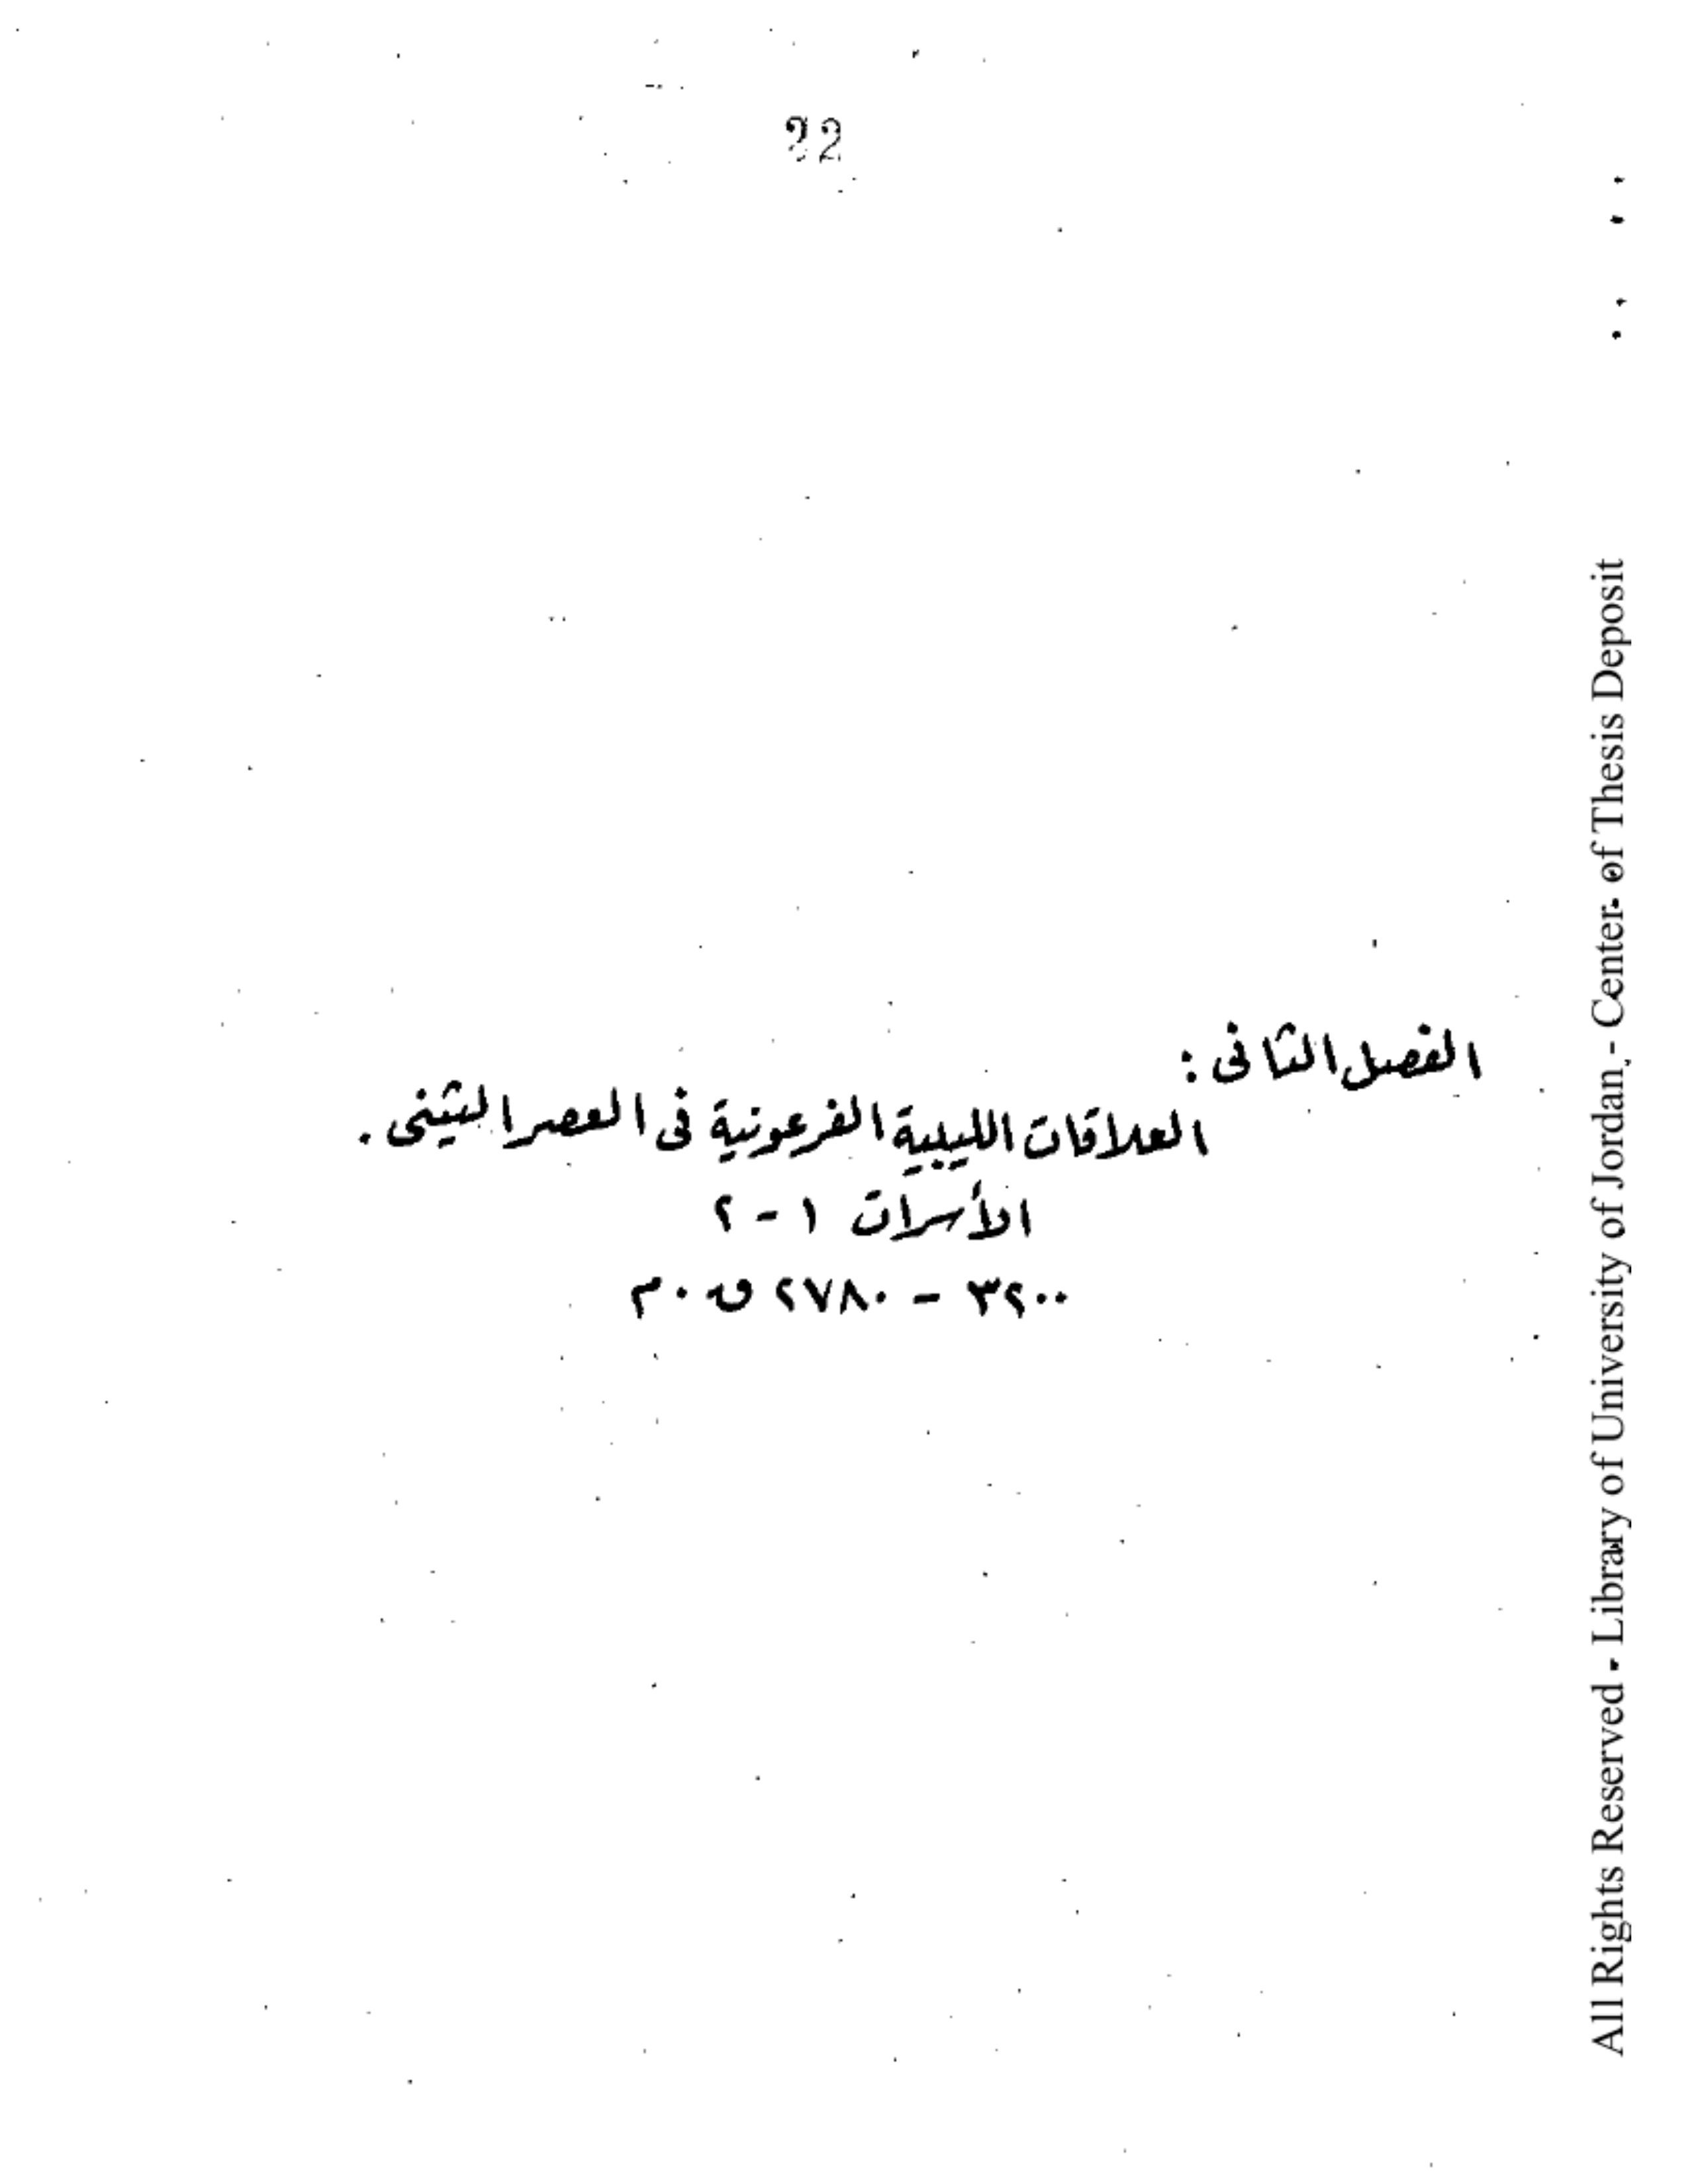 22
الفصل الثانى :
العلاقات الليبية الفرعونية فى العصر الثينى .
الأسرات ١ - ٢
٣٢٠٠ - ٢٧٨٠ ق . م
All Rights Reserved - Library of University of Jordan - Center of Thesis Deposit